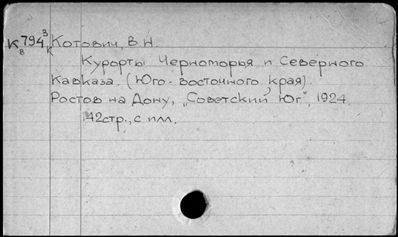 К 794 3 Котович, В.Н.
в к
Курорты Черноморья и Северного
Кавказа. (Юго-восточного края).
Ростов на Дону, „Советский Юг", 1924.
42стр., с илл.